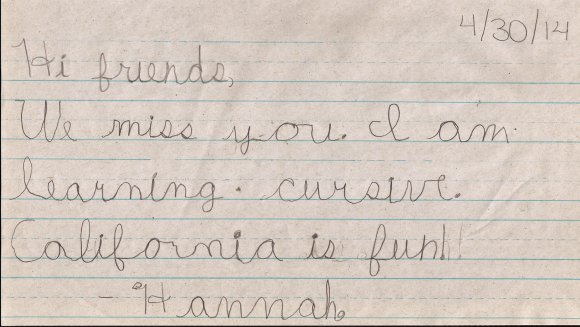 4/30/14
Hi friends,
We miss you. I am
learning. cursive.
California is fun!!
- Hannah